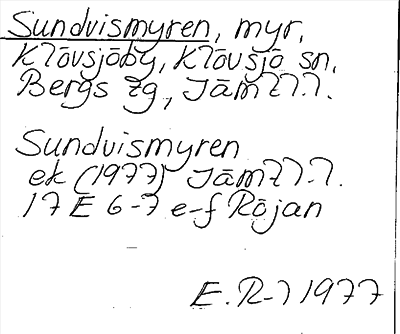 Sundvismyren, myr,
Klövsjöby, Klövsjö sn,
Bergs tg, Jämtl.
Sundvismyren
ek (1977) Jämtl.
17 E 6-7 e-f Röjan
E. R-l 1977